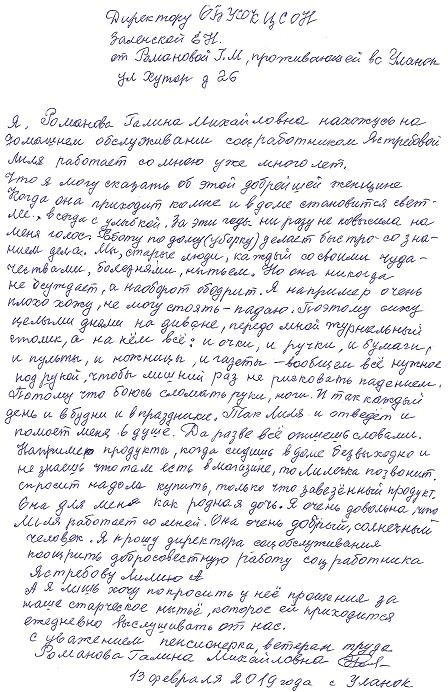 Директору ОБУСО КЦСОН
Заленской Е Н.
от Романовой Г.М, проживающей в с Уланок
ул Хутор д 26
Я, Романова Галина Михайловна нахожусь на
домашнем обслуживании соцработником Ястребовой
Лиля работает со мною уже много лет.
Что я могу сказать об этой добрейшей женщине
Когда она приходит ко мне и в доме становится свет-
лее, всегда с улыбкой. За эти годы ни разу не повысила на
меня голос. Работу по дому (уборку) делает быстро - со зна-
нием дела. Мы, старые люди, каждый со своими чуда-
чествами, болезнями, нытьем. Но она никогда
не осуждает, а наоборот ободрит. Я например очень
плохо хожу, не могу стоять - падаю. Поэтому сижу
целыми днями на диване, передо мной журнальный
столик, а на нём всё: и очки, и ручки, и бумаги,
и пульты, и ножницы, и газеты - вообщем всё нужное
под рукой, чтобы лишний раз не рисковать падением.
Потому что боюсь сломать руки, ноги. И так каждый
день и в будни и в праздники. Так Лиля и отведёт и
помоет меня в душе. Да разве всё опишешь словами.
Например продукты, когда сидишь в доме безвыходно и
не знаешь что там есть в магазине, то Лилечка позвонит.
спросит надо ли купить, только что завезённый продукт.
Она для меня как родная дочь. Я очень довольна что
Лиля работает со мной. Она очень добрый, солнечный
человек. Я прошу директора соцобслуживания
поощрить добросовестную работу соцработника
Ястребову Лилию А
А я лишь хочу попросить у неё прощения за
наше старческое нытьё, которое ей приходится
ежедневно выслушивать от нас.
С уважением пенсионерка, ветеран труда
Романова Галина Михайловна
13 февраля 2019 года с Уланок